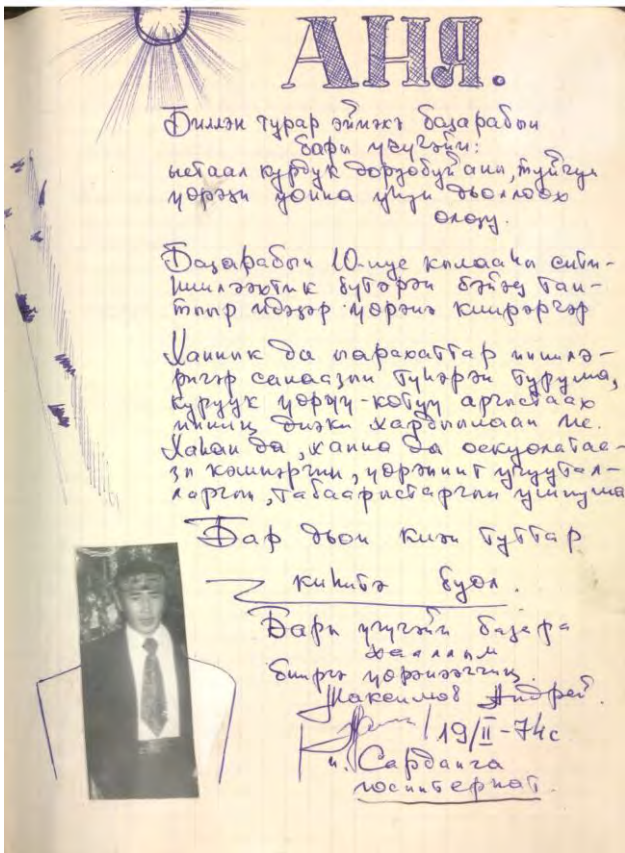 АНЯ.
Биллэн турар эйиэхэ баҕарабын
бары үчүгэйи:
ыстаал курдук доруобуйаны,
үөрэҕи уонна үксү дьоллоох
олоҕу.
Баҕарабын 10-нус кылааһы сити-
һиилээхтик бүтэрэн бэйэҥ тап-
тыыр идэҕэр үөрэнэ киирэргэр
Ханнык да ыарахаттар иннилэ-
ригэр санааҕын түһэрэн турума,
куруук үөрүү-көтүү аргыстаах
инниҥ диэки хардыылаан ис.
Хаһан да, ханна да оскуолатаа-
ҕы кэмнэргин, үөрэппит учуутал-
ларгын, табаарыстаргын умнума
Бар дьон киэн туттар
киһитэ буол.
Бары үчүгэйи баҕара
хааллым
бииргэ үөрэнээччиҥ
Максимов Андрей.
19/II-74с
п. Сардаҥа
госинтернат.